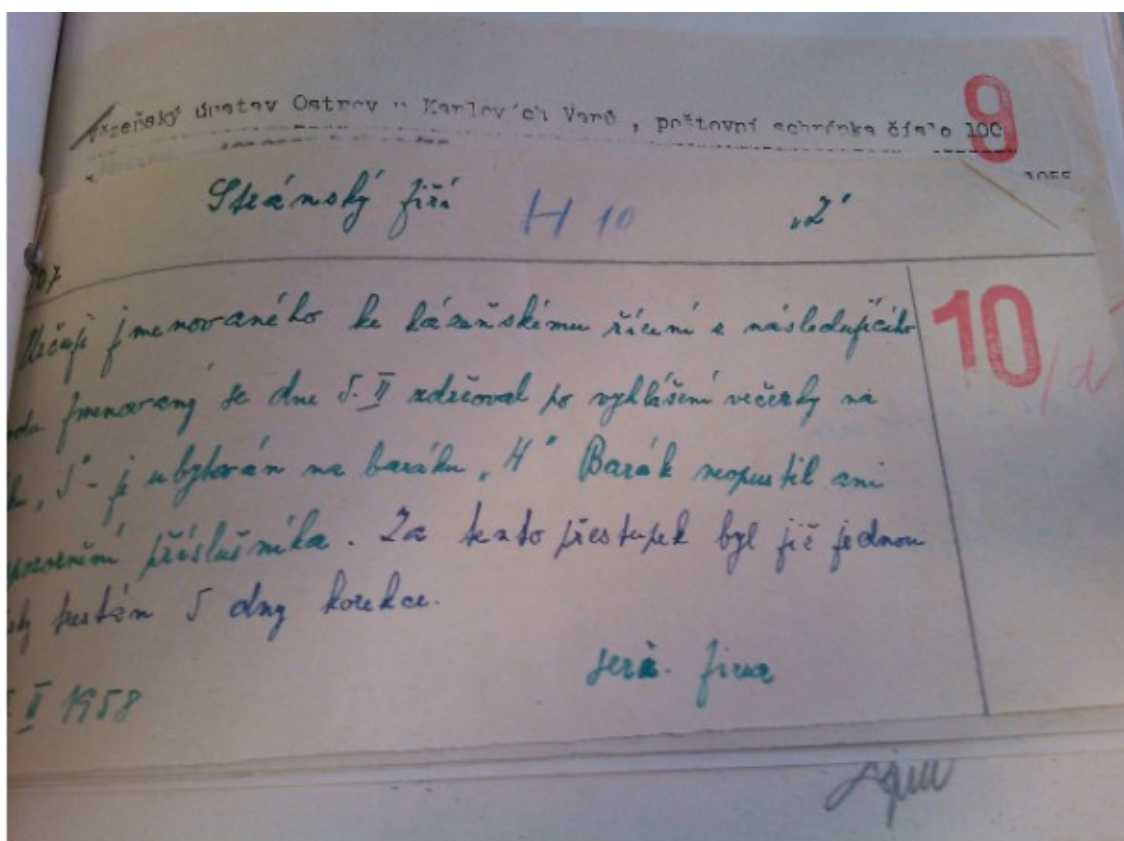 vězeňský ústav Ostrov u Karlových Varů , poštovní schránka číslo 100
9
1055
Stránský Jiří H 10 „Z"
07
Určuji jmenovaného ke kázeňskému řízení z následujícího
10
Jmenovaný se dne 5. II zdržoval po vyhlášení večerky na
„5" - je ubytován na baráku „4" Barák neopustil ani
příslušníka. Za tento přestupek byl již jednou
trestán 5 dny korekce.
II 1958